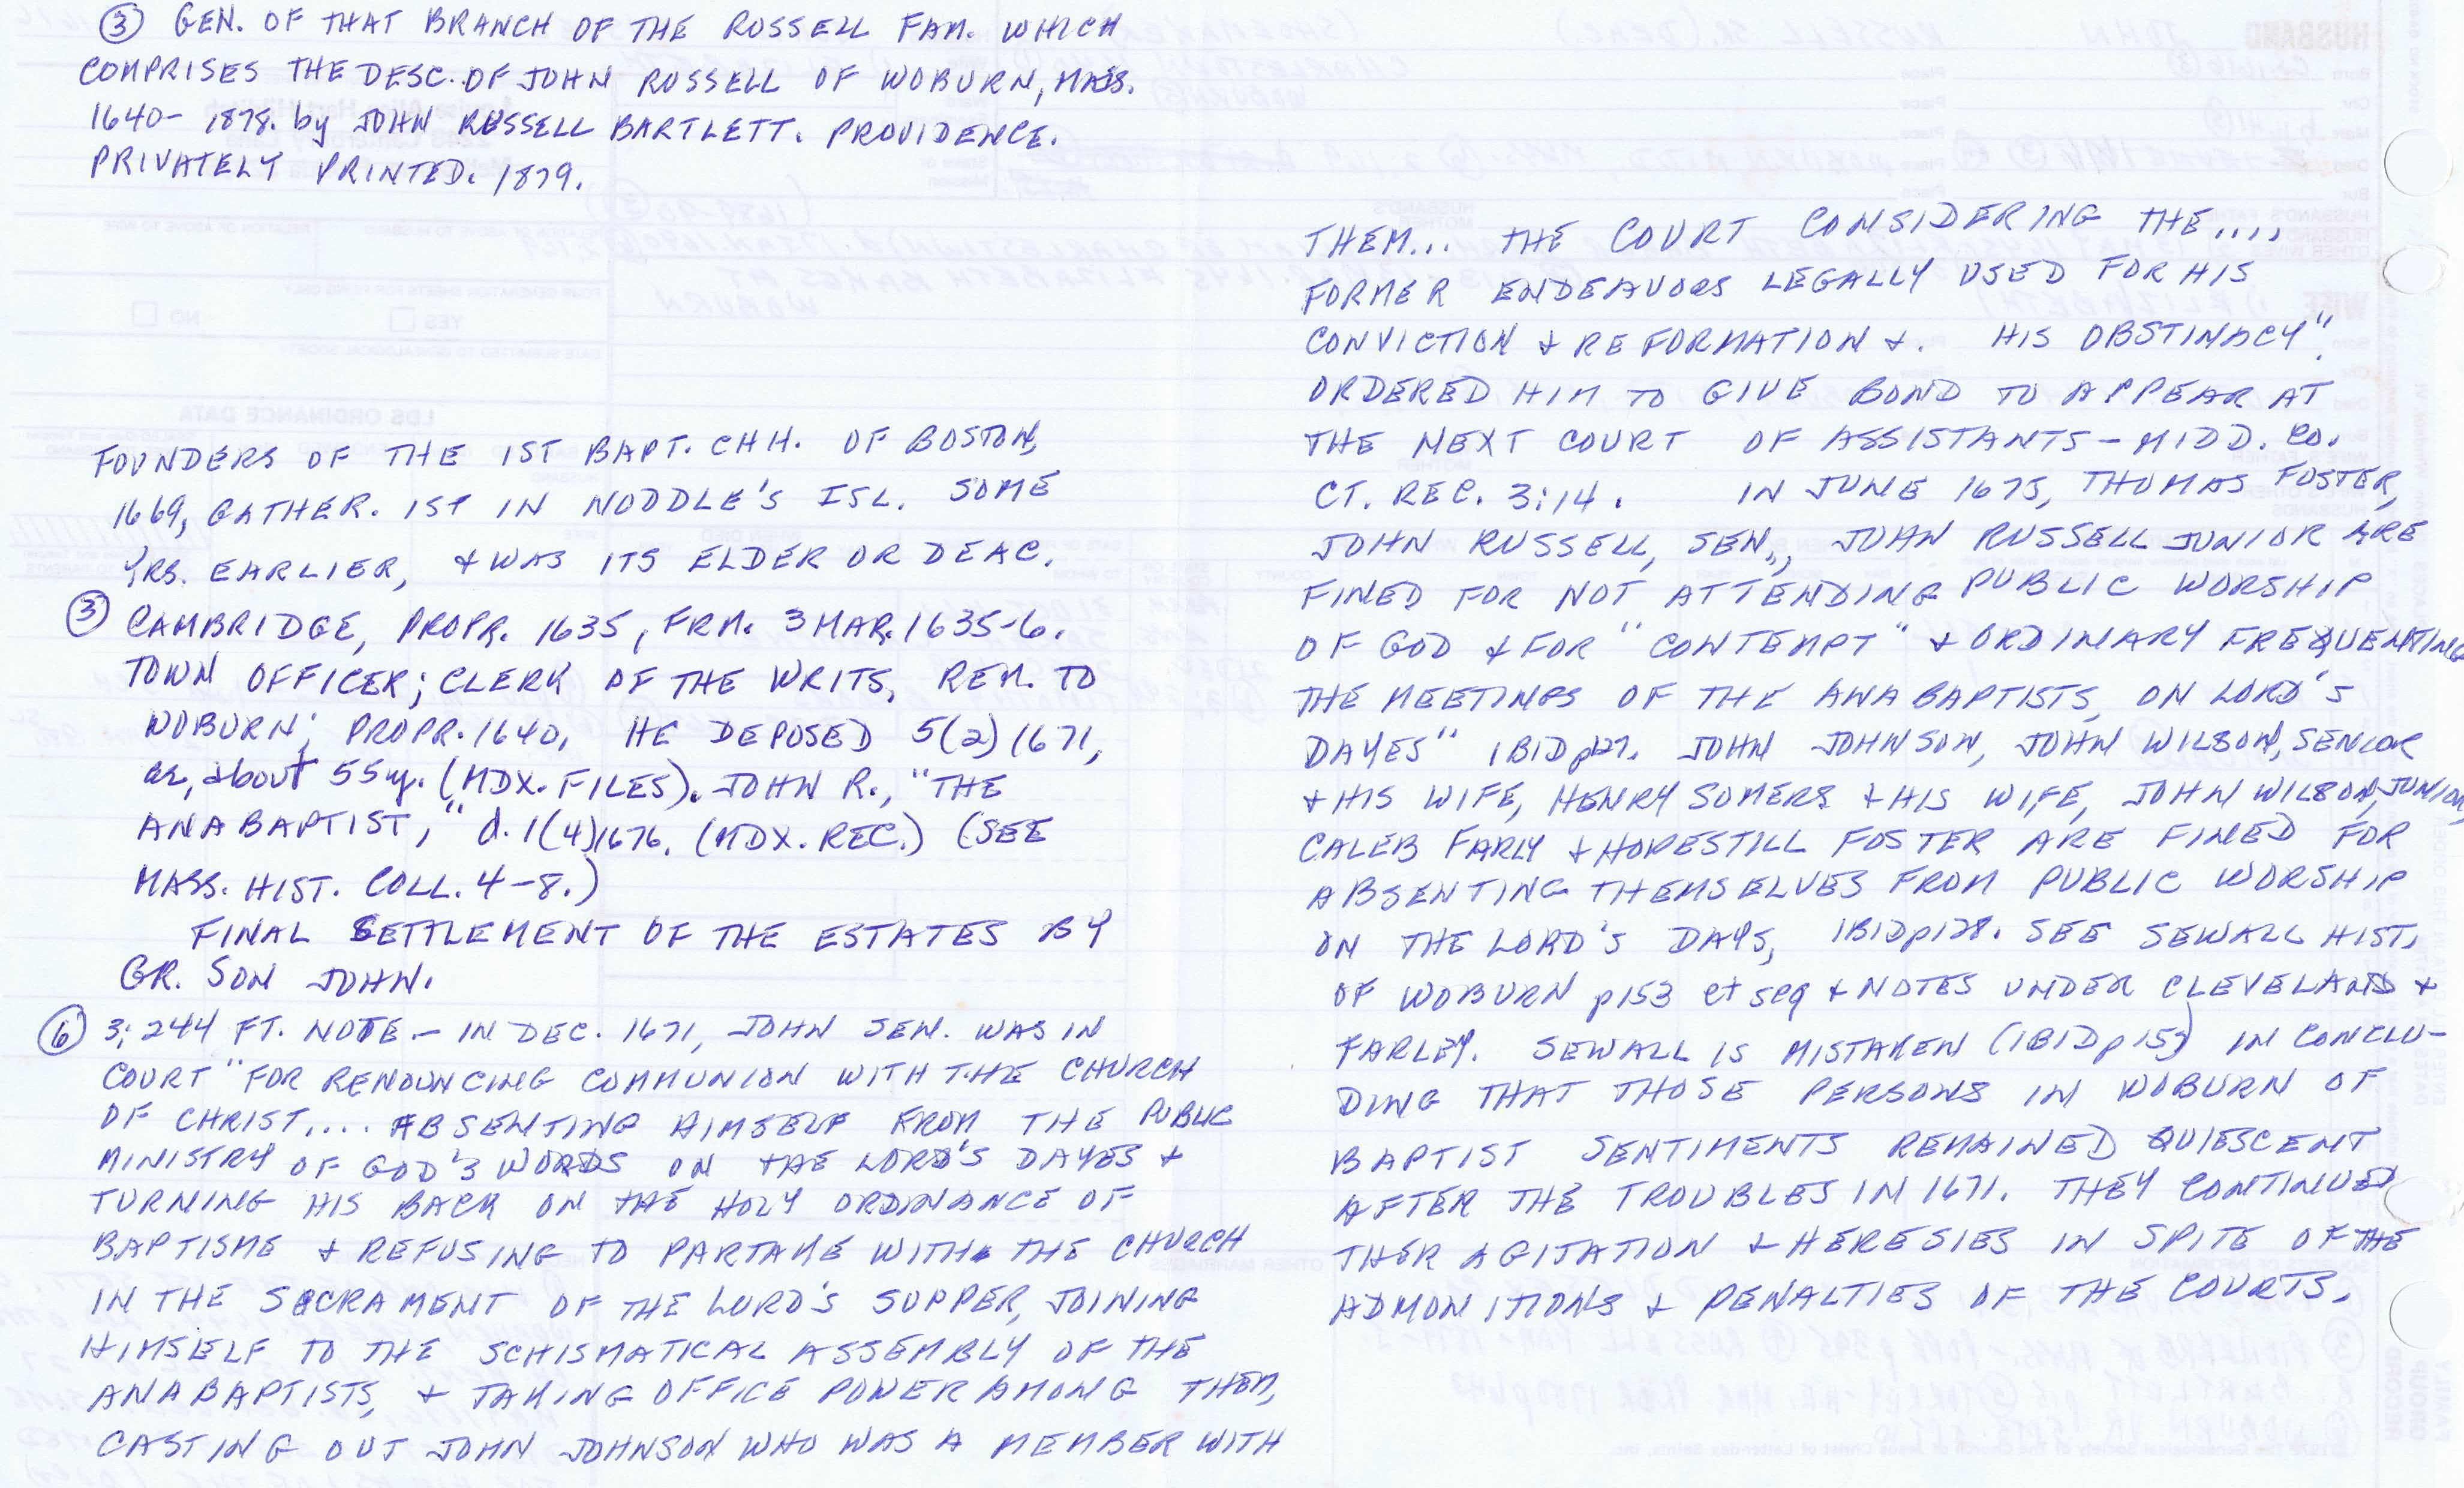 ③ GEN. OF THAT BRANCH OF THE RUSSELL FAM. WHICH
COMPRISES THE DESC. OF JOHN RUSSELL OF WOBURN, MASS.
1640- 1878. by JOHN RUSSELL BARTLETT. PROVIDENCE.
PRIVATELY PRINTED. 1879.
FOUNDERS OF THE 1ST BAPT. CHH. OF BOSTON,
1669, GATHER. 1ST IN NODDLE'S ISL. SOME
YRS. EARLIER, & WAS ITS ELDER OR DEAC.
③ CAMBRIDGE, PROPR. 1635, FRM. 3 MAR. 1635-6.
TOWN OFFICER; CLERK OF THE WRITS, REM. TO
WOBURN; PROPR. 1640, HE DEPOSED 5(2)1671,
ae. about 55 y. (MDX. FILES). JOHN R., "THE
ANABAPTIST," d. 1(4)1676. (MDX. REC.) (SEE
MASS. HIST. COLL. 4-8.)
FINAL SETTLEMENT OF THE ESTATES BY
GR. SON JOHN.
⑥ 3:244 FT. NOTE - IN DEC. 1671, JOHN SEN. WAS IN
COURT "FOR RENOUNCING COMMUNION WITH THE CHURCH
OF CHRIST.... ABSENTING HIMSELF FROM THE PUBLIC
MINISTRY OF GOD'S WORDS ON THE LORD'S DAYES &
TURNING HIS BACK ON THE HOLY ORDINANCE OF
BAPTISME & REFUSING TO PARTAKE WITH THE CHURCH
IN THE SACRAMENT OF THE LORD'S SUPPER, JOINING
HIMSELF TO THE SCHISMATICAL ASSEMBLY OF THE
ANABAPTISTS, & TAKING OFFICE POWER AMONG THEM,
CASTING OUT JOHN JOHNSON WHO WAS A MEMBER WITH
THEM... THE COURT CONSIDERING THE....
FORMER ENDEAVORS LEGALLY USED FOR HIS
CONVICTION & REFORMATION &. HIS OBSTINACY".
ORDERED HIM TO GIVE BOND TO APPEAR AT
THE NEXT COURT OF ASSISTANTS - MIDD. CO.
CT. REC. 3:14. IN JUNE 1675, THOMAS FOSTER,
JOHN RUSSELL, SEN., JOHN RUSSELL JUNIOR ARE
FINED FOR NOT ATTENDING PUBLIC WORSHIP
OF GOD & FOR "CONTEMPT" & ORDINARY FREQUENTING
THE MEETINGS OF THE ANABAPTISTS, ON LORD'S
DAYES" IBID p127. JOHN JOHNSON, JOHN WILSON, SENIOR
& HIS WIFE, HENRY SOMERS & HIS WIFE, JOHN WILSON, JUNIOR,
CALEB FARLY & HOPESTILL FOSTER ARE FINED FOR
ABSENTING THEMSELVES FROM PUBLIC WORSHIP
ON THE LORD'S DAYS, IBID p128. SEE SEWALL HIST.
OF WOBURN p153 et seq & NOTES UNDER CLEVELAND &
FARLEY. SEWALL IS MISTAKEN (IBID p 15 ) IN CONCLU-
DING THAT THOSE PERSONS IN WOBURN OF
BAPTIST SENTIMENTS REMAINED QUIESCENT
AFTER THE TROUBLES IN 1671. THEY CONTINUED
THER AGITATION & HERESIES IN SPITE OF THE
ADMONITIONS & PENALTIES OF THE COURTS.